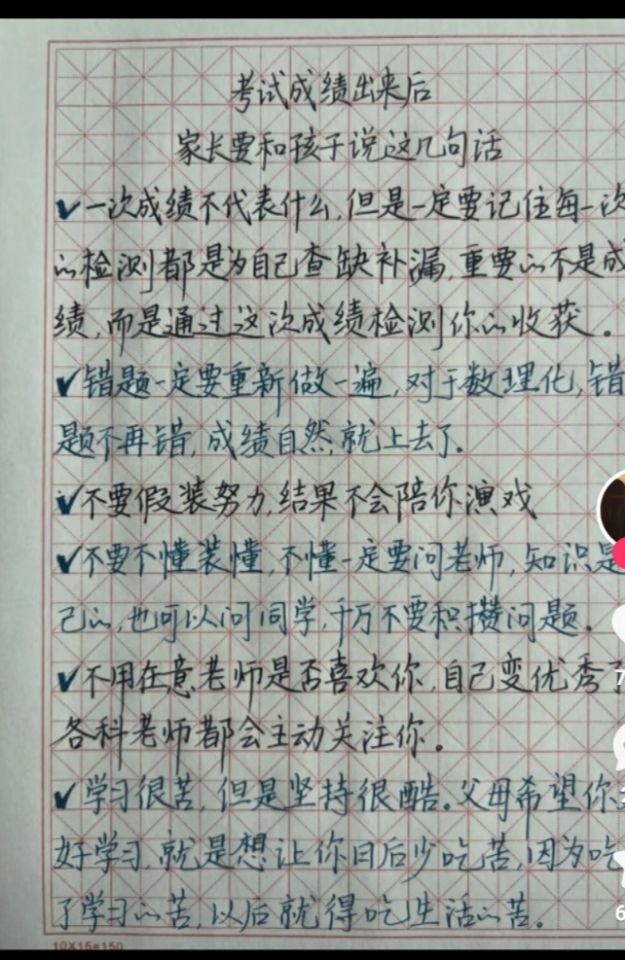 考试成绩出来后
家长要和孩子说这几句话
✓一次成绩不代表什么,但是一定要记住每一次
的检测都是为自己查缺补漏,重要的不是成
绩,而是通过这次成绩检测你的收获。
✓错题一定要重新做一遍,对于数理化,错
题不再错,成绩自然就上去了.
✓不要假装努力,结果不会陪你演戏
✓不要不懂装懂,不懂一定要问老师,知识是
己的,也可以问同学,千万不要积攒问题.
✓不用在意老师是否喜欢你,自己变优秀了
各科老师都会主动关注你。
✓学习很苦,但是坚持很酷。父母希望你
好学习,就是想让你日后少吃苦,因为吃
了学习的苦,以后就得吃生活的苦。
10X15=150